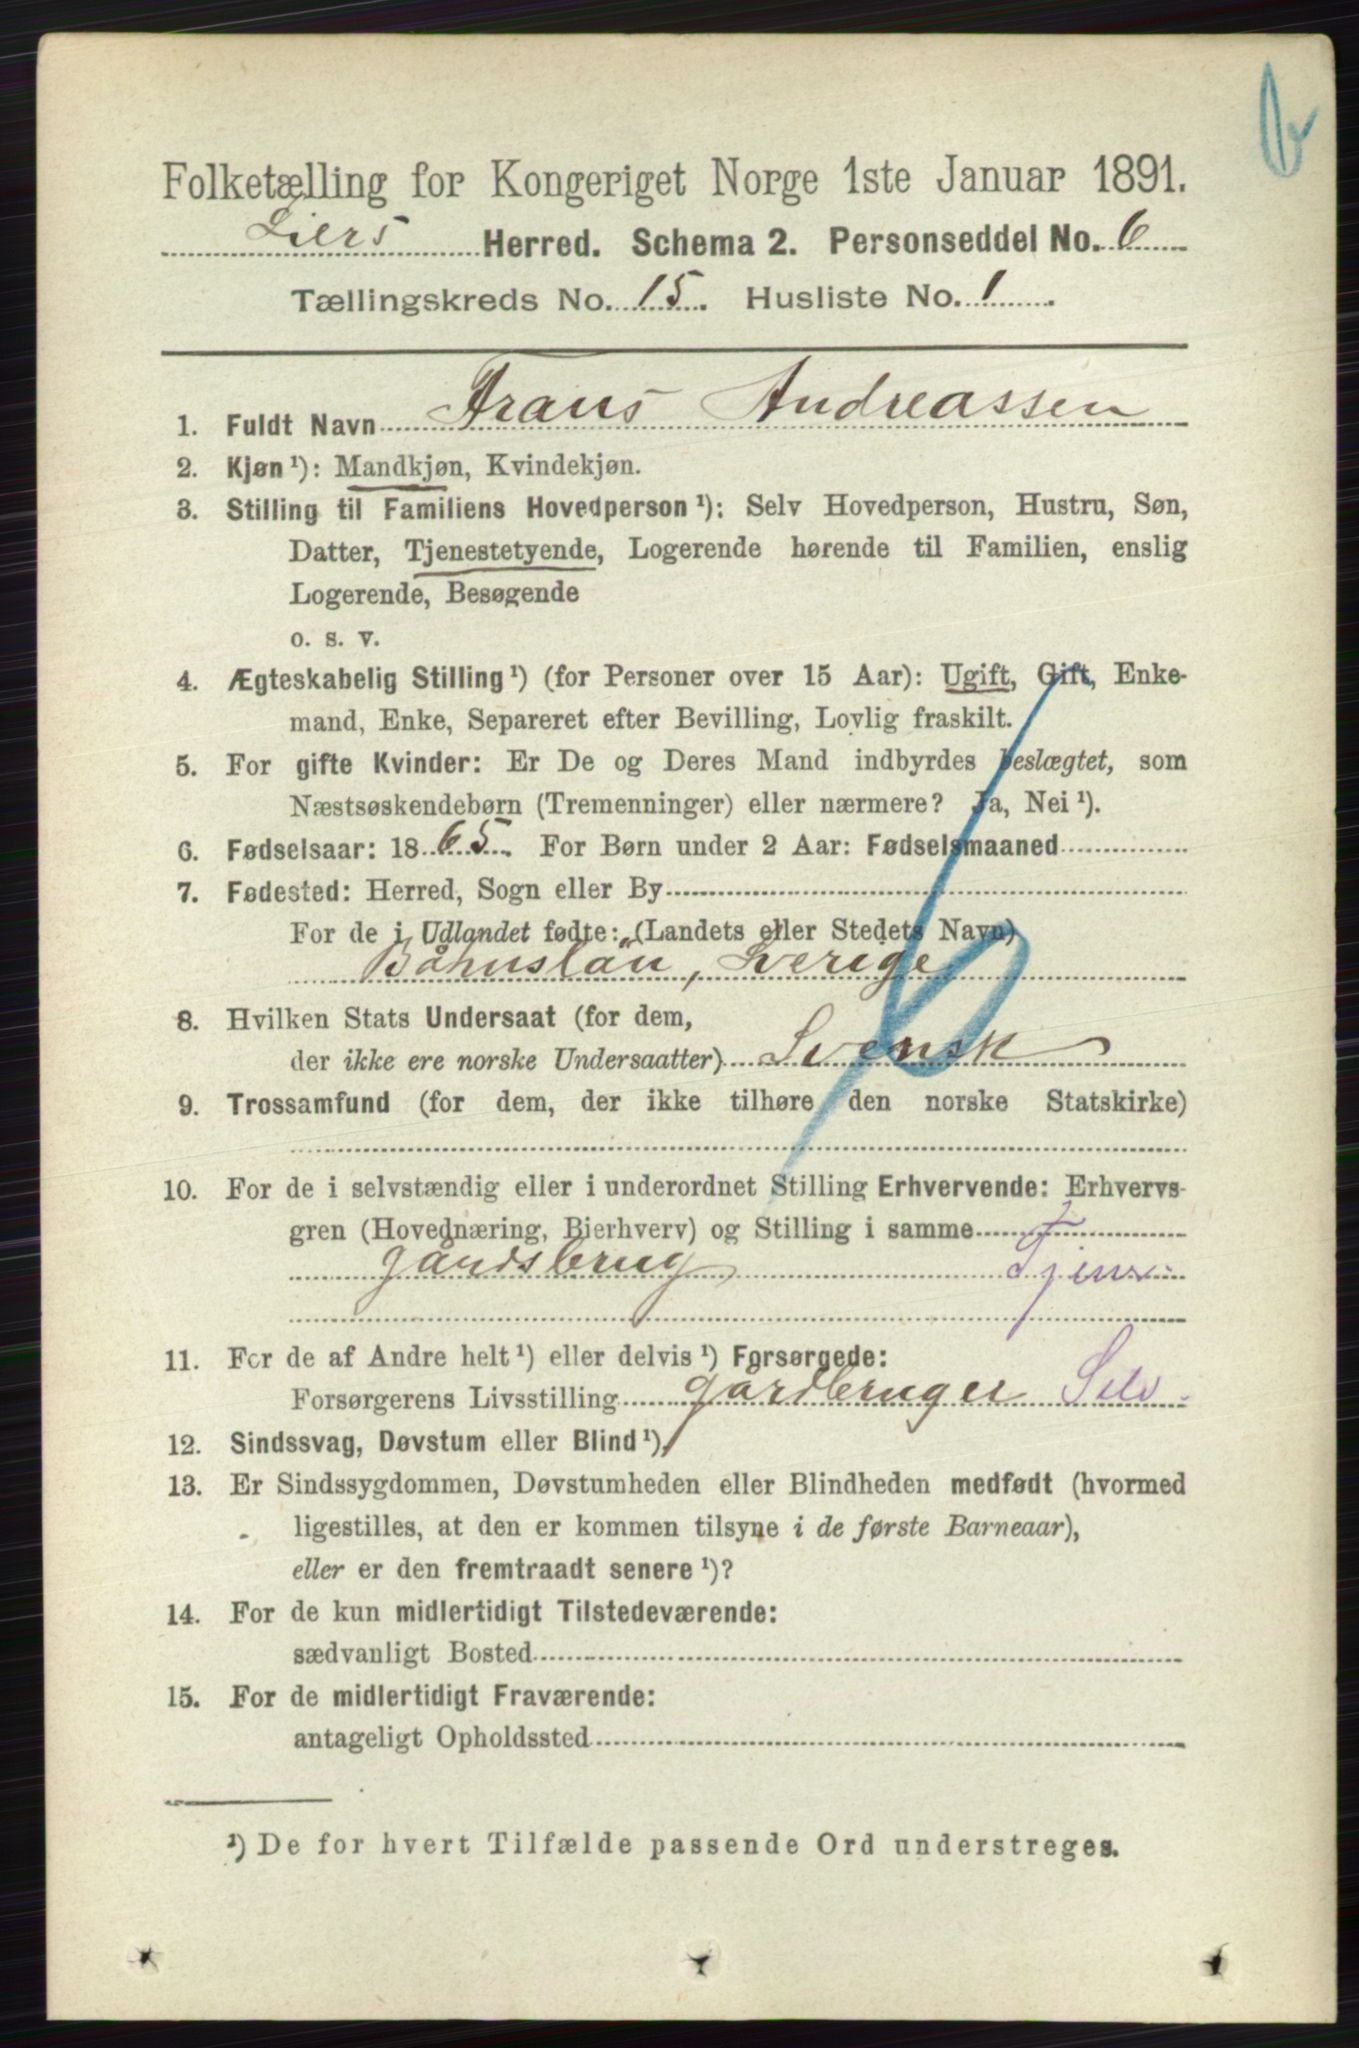 Folketælling for Kongeriget Norge 1ste Januar 1891.
Liers Herred. Schema 2. Personseddel No. 6
Tællingskreds No. 15. Husliste No. 1.
1. Fuldt Navn Frans Andreassen
2. Kjøn¹): Mandkjøn, Kvindekjøn.
3. Stilling til Familiens Hovedperson¹): Selv Hovedperson, Hustru, Søn,
Datter, Tjenestetyende, Logerende hørende til Familien, enslig
Logerende, Besøgende
o. s. v.
4. Ægteskabelig Stilling¹) (for Personer over 15 Aar): Ugift, Gift, Enke-
mand, Enke, Separeret efter Bevilling, Lovlig fraskilt.
5. For gifte Kvinder: Er De og Deres Mand indbyrdes beslægtet, som
Næstsøskendebørn (Tremenninger) eller nærmere? Ja, Nei¹).
6. Fødselsaar: 1865. For Børn under 2 Aar: Fødselsmaaned
7. Fødested: Herred, Sogn eller By
For de i Udlandet fødte: (Landets eller Stedets Navn)
Båhuslän, Sverige
8. Hvilken Stats Undersaat (for dem,
der ikke ere norske Undersaatter) Svensk
9. Trossamfund (for dem, der ikke tilhøre den norske Statskirke)
10. For de i selvstændig eller i underordnet Stilling Erhvervende: Erhvervs-
gren (Hovednæring, Bierhverv) og Stilling i samme
gårdsbrug Tjens.
11. For de af Andre helt¹) eller delvis¹) Forsørgede:
Forsørgerens Livsstilling gårdbruger Selv.
12. Sindssvag, Døvstum eller Blind¹),
13. Er Sindssygdommen, Døvstumheden eller Blindheden medfødt (hvormed
ligestilles, at den er kommen tilsyne i de første Barneaar),
eller er den fremtraadt senere¹)?
14. For de kun midlertidigt Tilstedeværende:
sædvanligt Bosted
15. For de midlertidigt Fraværende:
antageligt Opholdssted
¹) De for hvert Tilfælde passende Ord understreges.